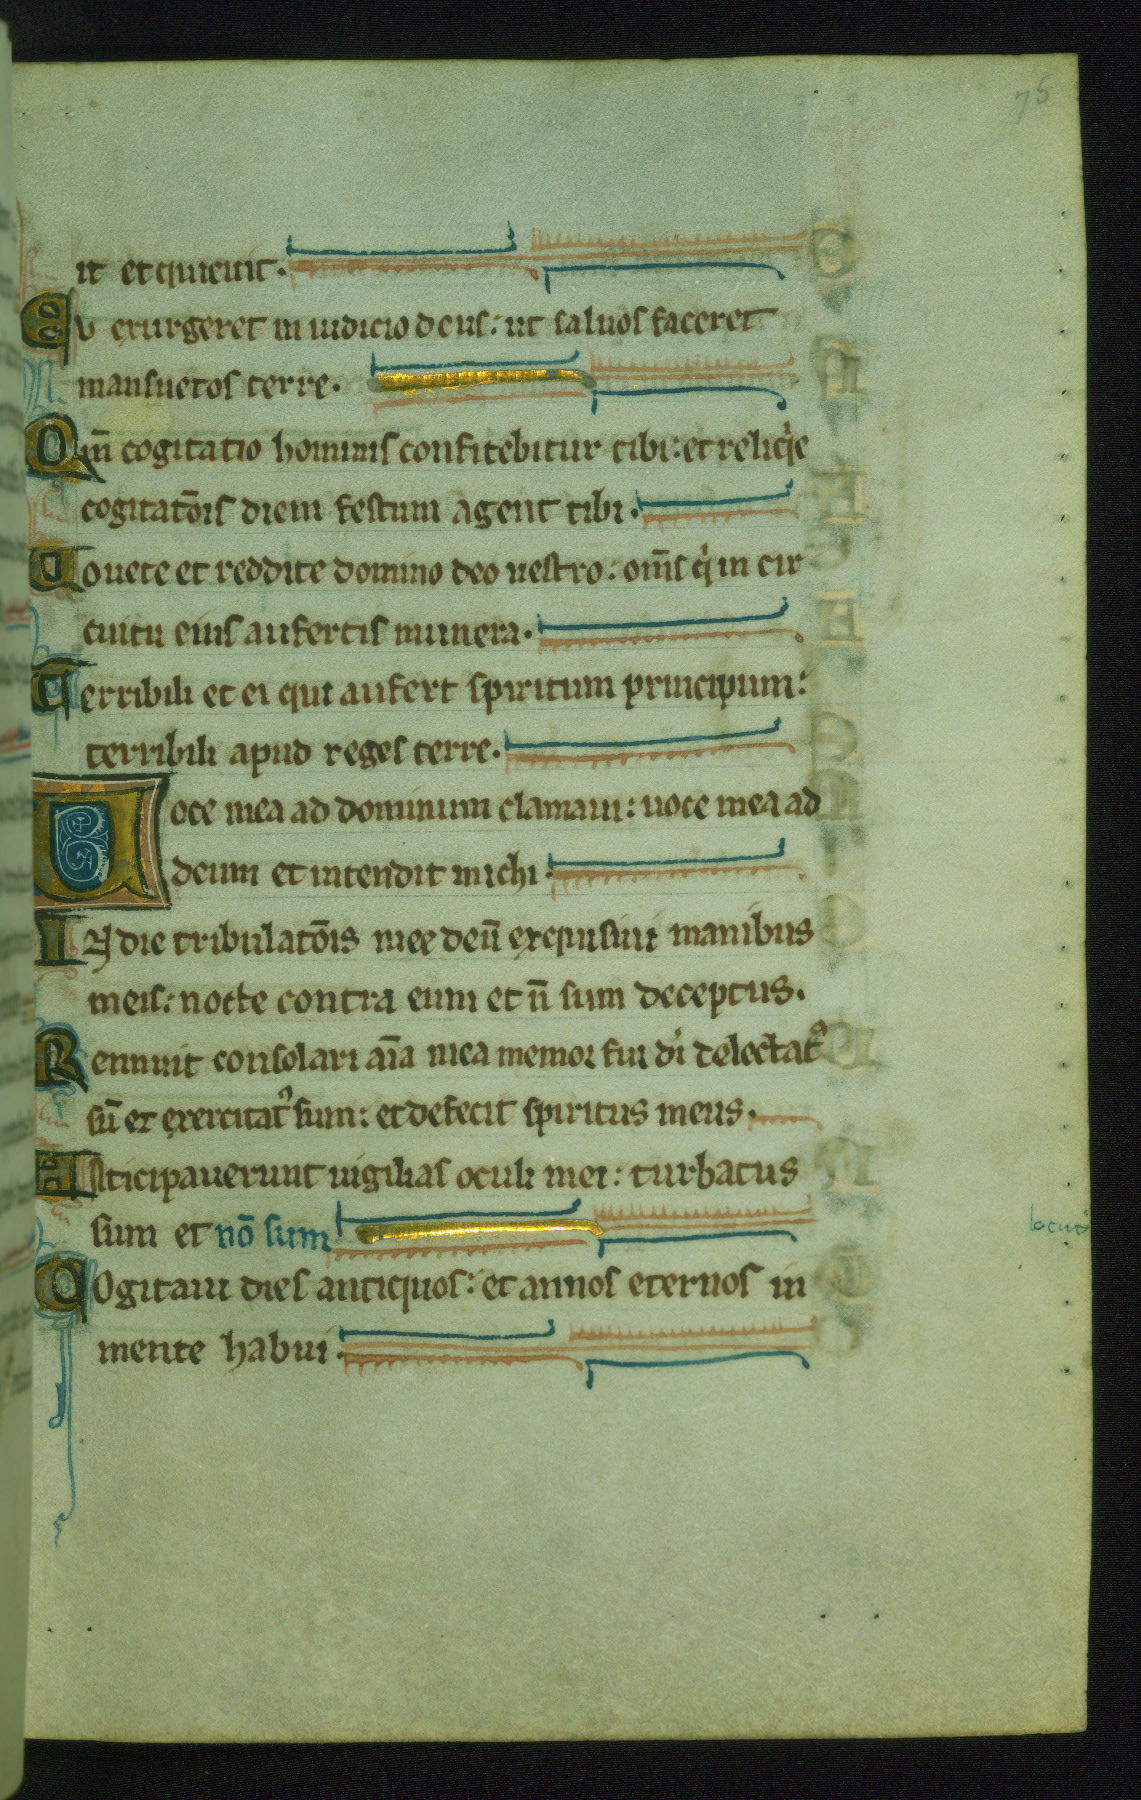 75
it et quieuit.
Cv exurgeret in iudicio deus: ut saluos faceret
mansuetos terre.
Qm̄ cogitatio hominis confitebitur tibi: et reliqͥe
cogitatōis diem festum agent tibi.
Uouete et reddite domino deo uestro: om̄s qͥ in cir
cuitu eius affertis munera.
Terribili et ei qui aufert spiritum principum:
terribili apud reges terre.
Uoce mea ad dominum clamaui: uoce mea ad
deum et intendit michi.
IN die tribulatōis mee deū exquisiui manibus
meis: nocte contra eum et n̄ sum deceptus.
Rennuit consolari aīa mea memor fui di delectatꝰ
sū et exercitatꝰ sum: et defecit spiritus meus.
Anticipauerunt uigilias oculi mei: turbatus
sum et nō sum
locutꝰ
COgitaui dies antiquos: et annos eternos in
mente habui.